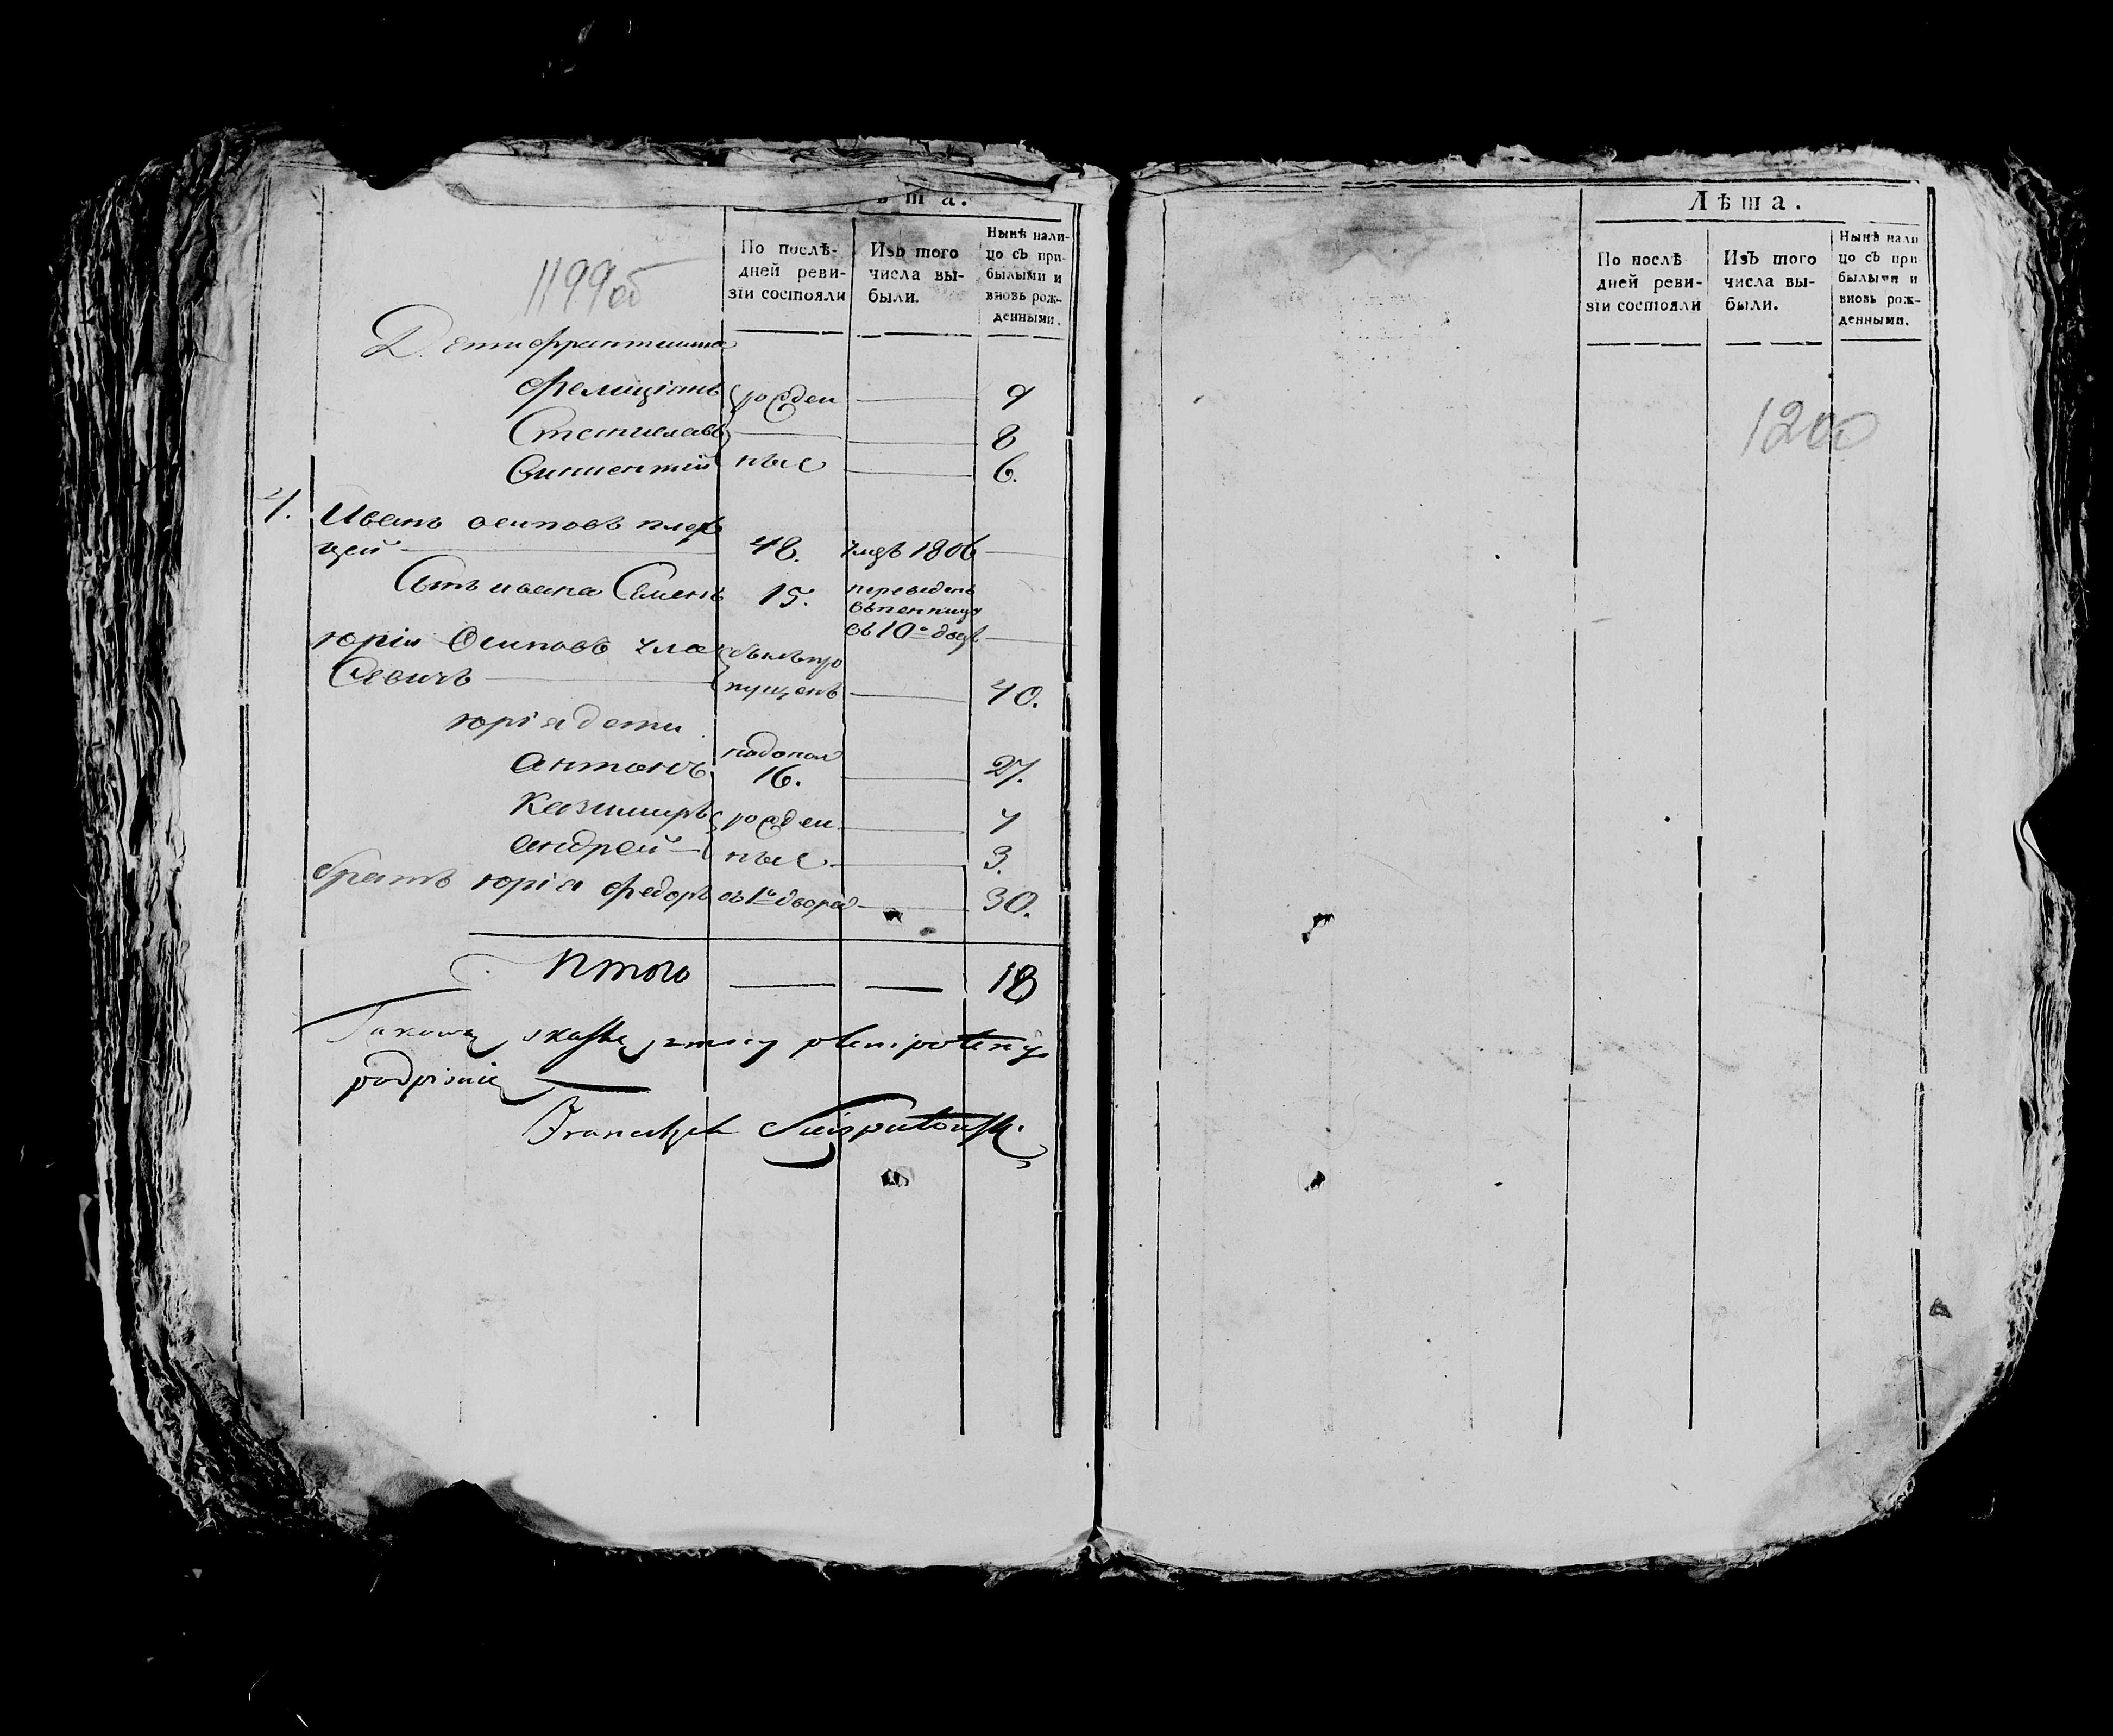 ѣта.
По послѣ-
дней реви-
зіи состояли
Изъ того
числа вы-
были.
Нынѣ нали-
цо съ при-
былыми и
вновь рож-
денными.
1199об
Дети Франтишка
Фелиціанъ рожден 9
Станиславъ 8
Винцентій ные 6.
4. Иванъ Осиповъ
цей 48. 1806
Сынъ Ивана Семенъ 15. переведенъ
съ 10
Юрій Осиповъ
севичъ пущенъ 40.
Юрія дети
Антонъ 16. 27.
Казимиръ рожден 4
Андрей ные 3.
братъ Юрія Федоръ съ 1 двора 30.
Итого 18
Takową skaskę z mocy plenipotencyi
podpisuię
Franciszek
Лѣта.
По послѣ
дней реви-
зіи состояли
Изъ того
числа вы-
были.
Нынѣ нали
цо съ при
былыми и
вновь рож-
денными.
1200